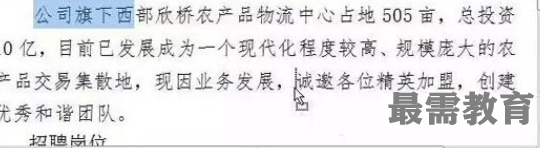 公司旗下西部欣桥农产品物流中心占地 505 亩，总投资
0 亿，目前已发展成为一个现代化程度较高、规模庞大的农
产品交易集散地，现因业务发展，诚邀各位精英加盟，创建
优秀和谐团队。
最需教育
招聘岗位